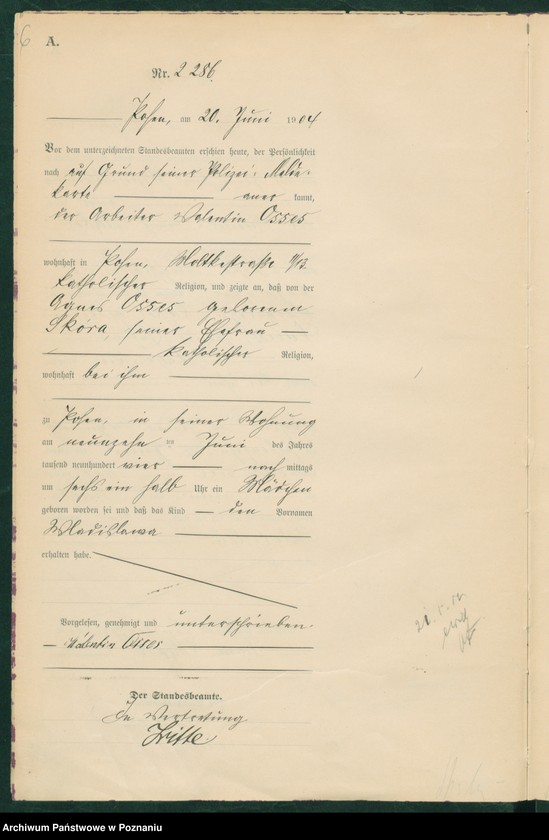 6
A.
Nr. 2286.
Posen, am 20. Juni 1904
Vor dem unterzeichneten Standesbeamten erschien heute, der Persönlichkeit
nach auf Grund seiner Polizei-Melde-
karte aner kannt,
der Arbeiter Valentin Osses
wohnhaft in Posen, Moltkestraße
katholischer Religion, und zeigte an, daß von der
Agnes Osses geborenen
Skóra, seiner Ehefrau
katholischer Religion,
wohnhaft bei ihm
zu Posen, in seiner Wohnung
am neunzehn ten Juni des Jahres
tausend neunhundert vier nach mittags
um sechs ein halb Uhr ein Mädchen
geboren worden sei und daß das Kind den Vornamen
Wladislawa
erhalten habe.
Vorgelesen, genehmigt und unterschrieben.
Walentin Osses
Der Standesbeamte.
In Vertretung
Archiwum Państwowe w Poznaniu